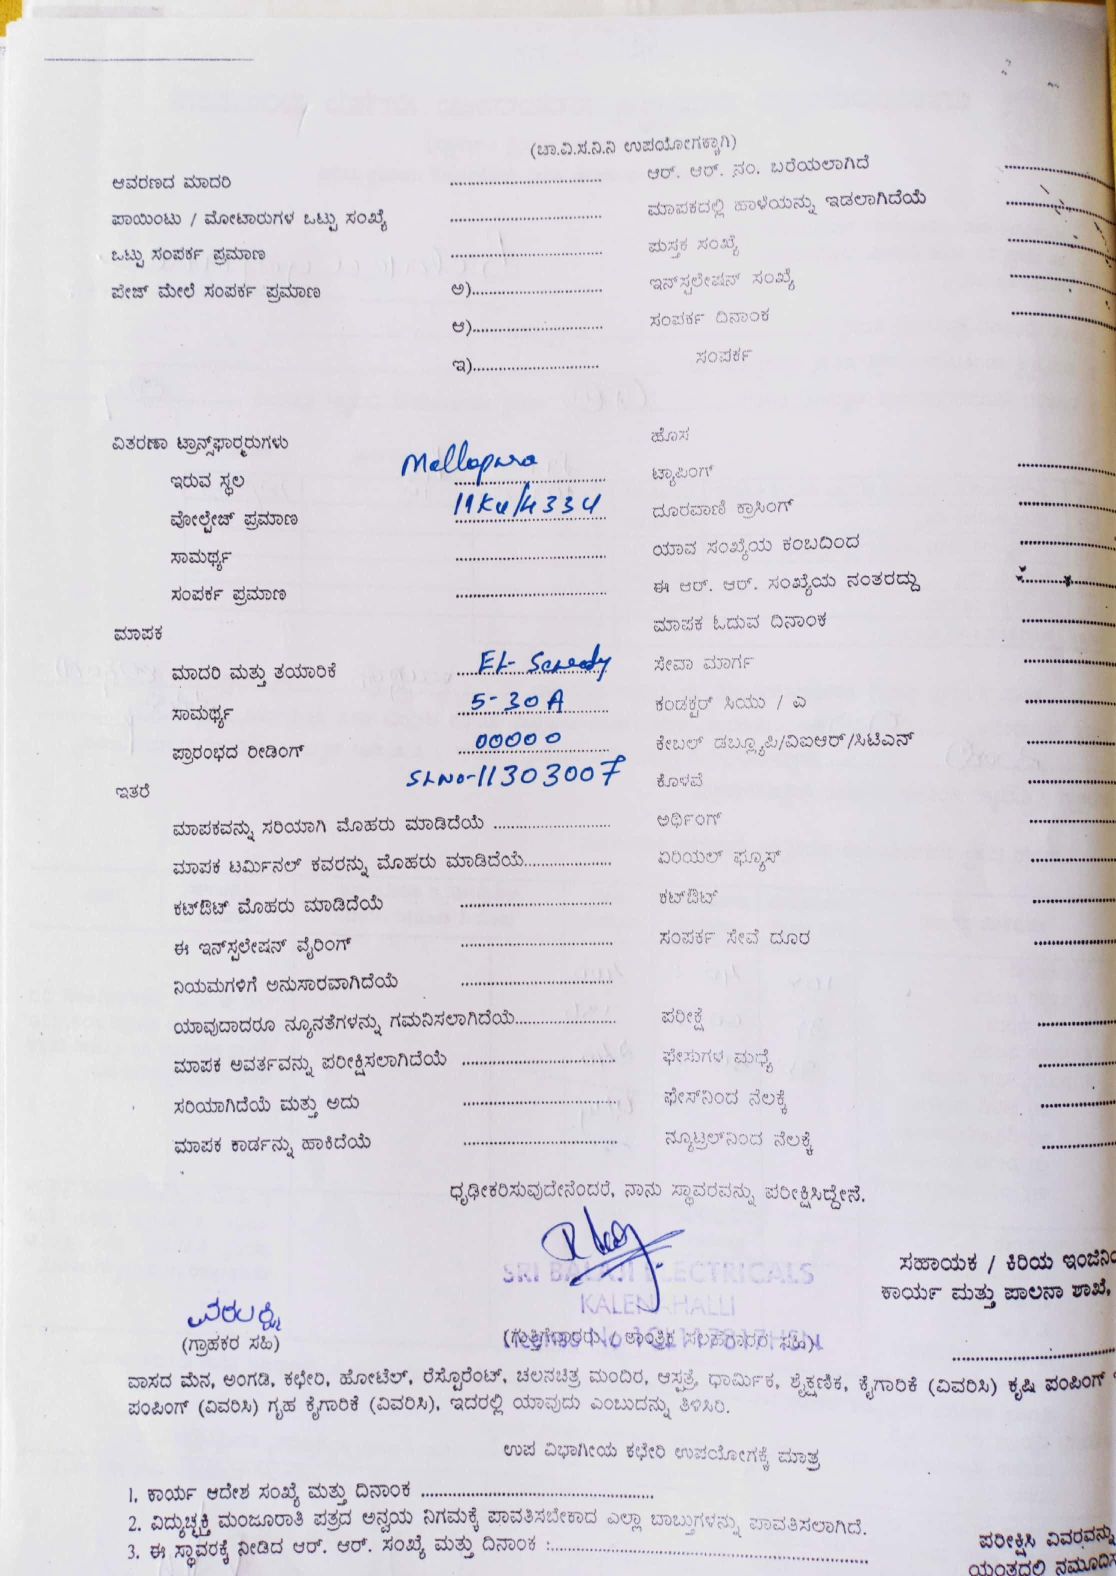 (ಚಾ.ವಿ.ಸ.ನಿ.ನಿ ಉಪಯೋಗಕ್ಕಾಗಿ)
ಆವರಣದ ಮಾದರಿ .............................. ಆರ್. ಆರ್. ನಂ. ಬರೆಯಲಾಗಿದೆ ..............................
ಪಾಯಿಂಟು / ಮೋಟಾರುಗಳ ಒಟ್ಟು ಸಂಖ್ಯೆ .............................. ಮಾಪಕದಲ್ಲಿ ಹಾಳೆಯನ್ನು ಇಡಲಾಗಿದೆಯೆ ..............................
ಒಟ್ಟು ಸಂಪರ್ಕ ಪ್ರಮಾಣ .............................. ಪುಸ್ತಕ ಸಂಖ್ಯೆ ..............................
ಪೇಜ್ ಮೇಲೆ ಸಂಪರ್ಕ ಪ್ರಮಾಣ ಅ).............................. ಇನ್‌ಸ್ಟಲೇಷನ್ ಸಂಖ್ಯೆ ..............................
ಆ).............................. ಸಂಪರ್ಕ ದಿನಾಂಕ ..............................
ಇ).............................. ಸಂಪರ್ಕ
ವಿತರಣಾ ಟ್ರಾನ್ಸ್‌ಫಾರ್‍ಮರುಗಳು ಹೊಸ
ಇರುವ ಸ್ಥಲ Mallapura ಟ್ಯಾಪಿಂಗ್ ..............................
ವೋಲ್ಟೇಜ್ ಪ್ರಮಾಣ 11KV/433V ದೂರವಾಣಿ ಕ್ರಾಸಿಂಗ್ ..............................
ಸಾಮರ್ಥ್ಯ .............................. ಯಾವ ಸಂಖ್ಯೆಯ ಕಂಬದಿಂದ ..............................
ಸಂಪರ್ಕ ಪ್ರಮಾಣ .............................. ಈ ಆರ್. ಆರ್. ಸಂಖ್ಯೆಯ ನಂತರದ್ದು ..............................
ಮಾಪಕ ಮಾಪಕ ಓದುವ ದಿನಾಂಕ ..............................
ಮಾದರಿ ಮತ್ತು ತಯಾರಿಕೆ ಸೇವಾ ಮಾರ್ಗ ..............................
ಸಾಮರ್ಥ್ಯ 5-30A ಕಂಡಕ್ಟರ್ ಸಿಯು / ಎ ..............................
ಪ್ರಾರಂಭದ ರೀಡಿಂಗ್ 00000 ಕೇಬಲ್ ಡಬ್ಲ್ಯೂಪಿ/ವಿಐಆರ್/ಸಿಟಿಎನ್ ..............................
ಇತರೆ SLNO-11303007 ಕೊಳವೆ ..............................
ಮಾಪಕವನ್ನು ಸರಿಯಾಗಿ ಮೊಹರು ಮಾಡಿದೆಯೆ .............................. ಅರ್ಥಿಂಗ್ ..............................
ಮಾಪಕ ಟರ್ಮಿನಲ್ ಕವರನ್ನು ಮೊಹರು ಮಾಡಿದೆಯೆ.................... ಏರಿಯಲ್ ಫ್ಯೂಸ್ ..............................
ಕಟ್‌ಔಟ್ ಮೊಹರು ಮಾಡಿದೆಯೆ .............................. ಕಟ್‌ಔಟ್ ..............................
ಈ ಇನ್‌ಸ್ಟಲೇಷನ್ ವೈರಿಂಗ್ .............................. ಸಂಪರ್ಕ ಸೇವೆ ದೂರ ..............................
ನಿಯಮಗಳಿಗೆ ಅನುಸಾರವಾಗಿದೆಯೆ ..............................
ಯಾವುದಾದರೂ ನ್ಯೂನತೆಗಳನ್ನು ಗಮನಿಸಲಾಗಿದೆಯೆ.................... ಪರೀಕ್ಷೆ ..............................
ಮಾಪಕ ಅವರ್ತವನ್ನು ಪರೀಕ್ಷಿಸಲಾಗಿದೆಯೆ .............................. ಫೇಸುಗಳ ಮಧ್ಯೆ ..............................
ಸರಿಯಾಗಿದೆಯೆ ಮತ್ತು ಅದು .............................. ಫೇಸ್‌ನಿಂದ ನೆಲಕ್ಕೆ ..............................
ಮಾಪಕ ಕಾರ್ಡನ್ನು ಹಾಕಿದೆಯೆ .............................. ನ್ಯೂಟ್ರಲ್‌ನಿಂದ ನೆಲಕ್ಕೆ ..............................
ಧೃಢೀಕರಿಸುವುದೇನೆಂದರೆ, ನಾನು ಸ್ಥಾವರವನ್ನು ಪರೀಕ್ಷಿಸಿದ್ದೇನೆ.
ಸಹಾಯಕ / ಕಿರಿಯ
SRI BALAJI ELECTRICALS
ಕಾರ್ಯ ಮತ್ತು ಪಾಲನಾ ಶಾಖೆ,
KALENAHALLI
(ಗ್ರಾಹಕರ ಸಹಿ) (ಗುತ್ತಿಗೆದಾರರು / ತಾಂತ್ರಿಕ ಸಲಹಾಗಾರರ ಸಹಿ) ..............................
ವಾಸದ ಮೆನ, ಅಂಗಡಿ, ಕಛೇರಿ, ಹೋಟೆಲ್, ರೆಸ್ಟೊರೆಂಟ್, ಚಲನಚಿತ್ರ ಮಂದಿರ, ಆಸ್ಪತ್ರೆ, ಧಾರ್ಮಿಕ, ಶೈಕ್ಷಣಿಕ, ಕೈಗಾರಿಕೆ (ವಿವರಿಸಿ) ಕೃಷಿ ಪಂಪಿಂಗ್
ಪಂಪಿಂಗ್ (ವಿವರಿಸಿ) ಗೃಹ ಕೈಗಾರಿಕೆ (ವಿವರಿಸಿ), ಇದರಲ್ಲಿ ಯಾವುದು ಎಂಬುದನ್ನು ತಿಳಿಸಿರಿ.
ಉಪ ವಿಭಾಗೀಯ ಕಛೇರಿ ಉಪಯೋಗಕ್ಕೆ ಮಾತ್ರ
1. ಕಾರ್ಯ ಆದೇಶ ಸಂಖ್ಯೆ ಮತ್ತು ದಿನಾಂಕ ..............................
2. ವಿದ್ಯುಚ್ಛಕ್ತಿ ಮಂಜೂರಾತಿ ಪತ್ರದ ಅನ್ವಯ ನಿಗಮಕ್ಕೆ ಪಾವತಿಸಬೇಕಾದ ಎಲ್ಲಾ ಬಾಬ್ತುಗಳನ್ನು ಪಾವತಿಸಲಾಗಿದೆ.
3. ಈ ಸ್ಥಾವರಕ್ಕೆ ನೀಡಿದ ಆರ್. ಆರ್. ಸಂಖ್ಯೆ ಮತ್ತು ದಿನಾಂಕ :..............................
ಪರೀಕ್ಷಿಸಿ ವಿವರವನ್ನು
ಯಂತ್ರದಲ್ಲಿ